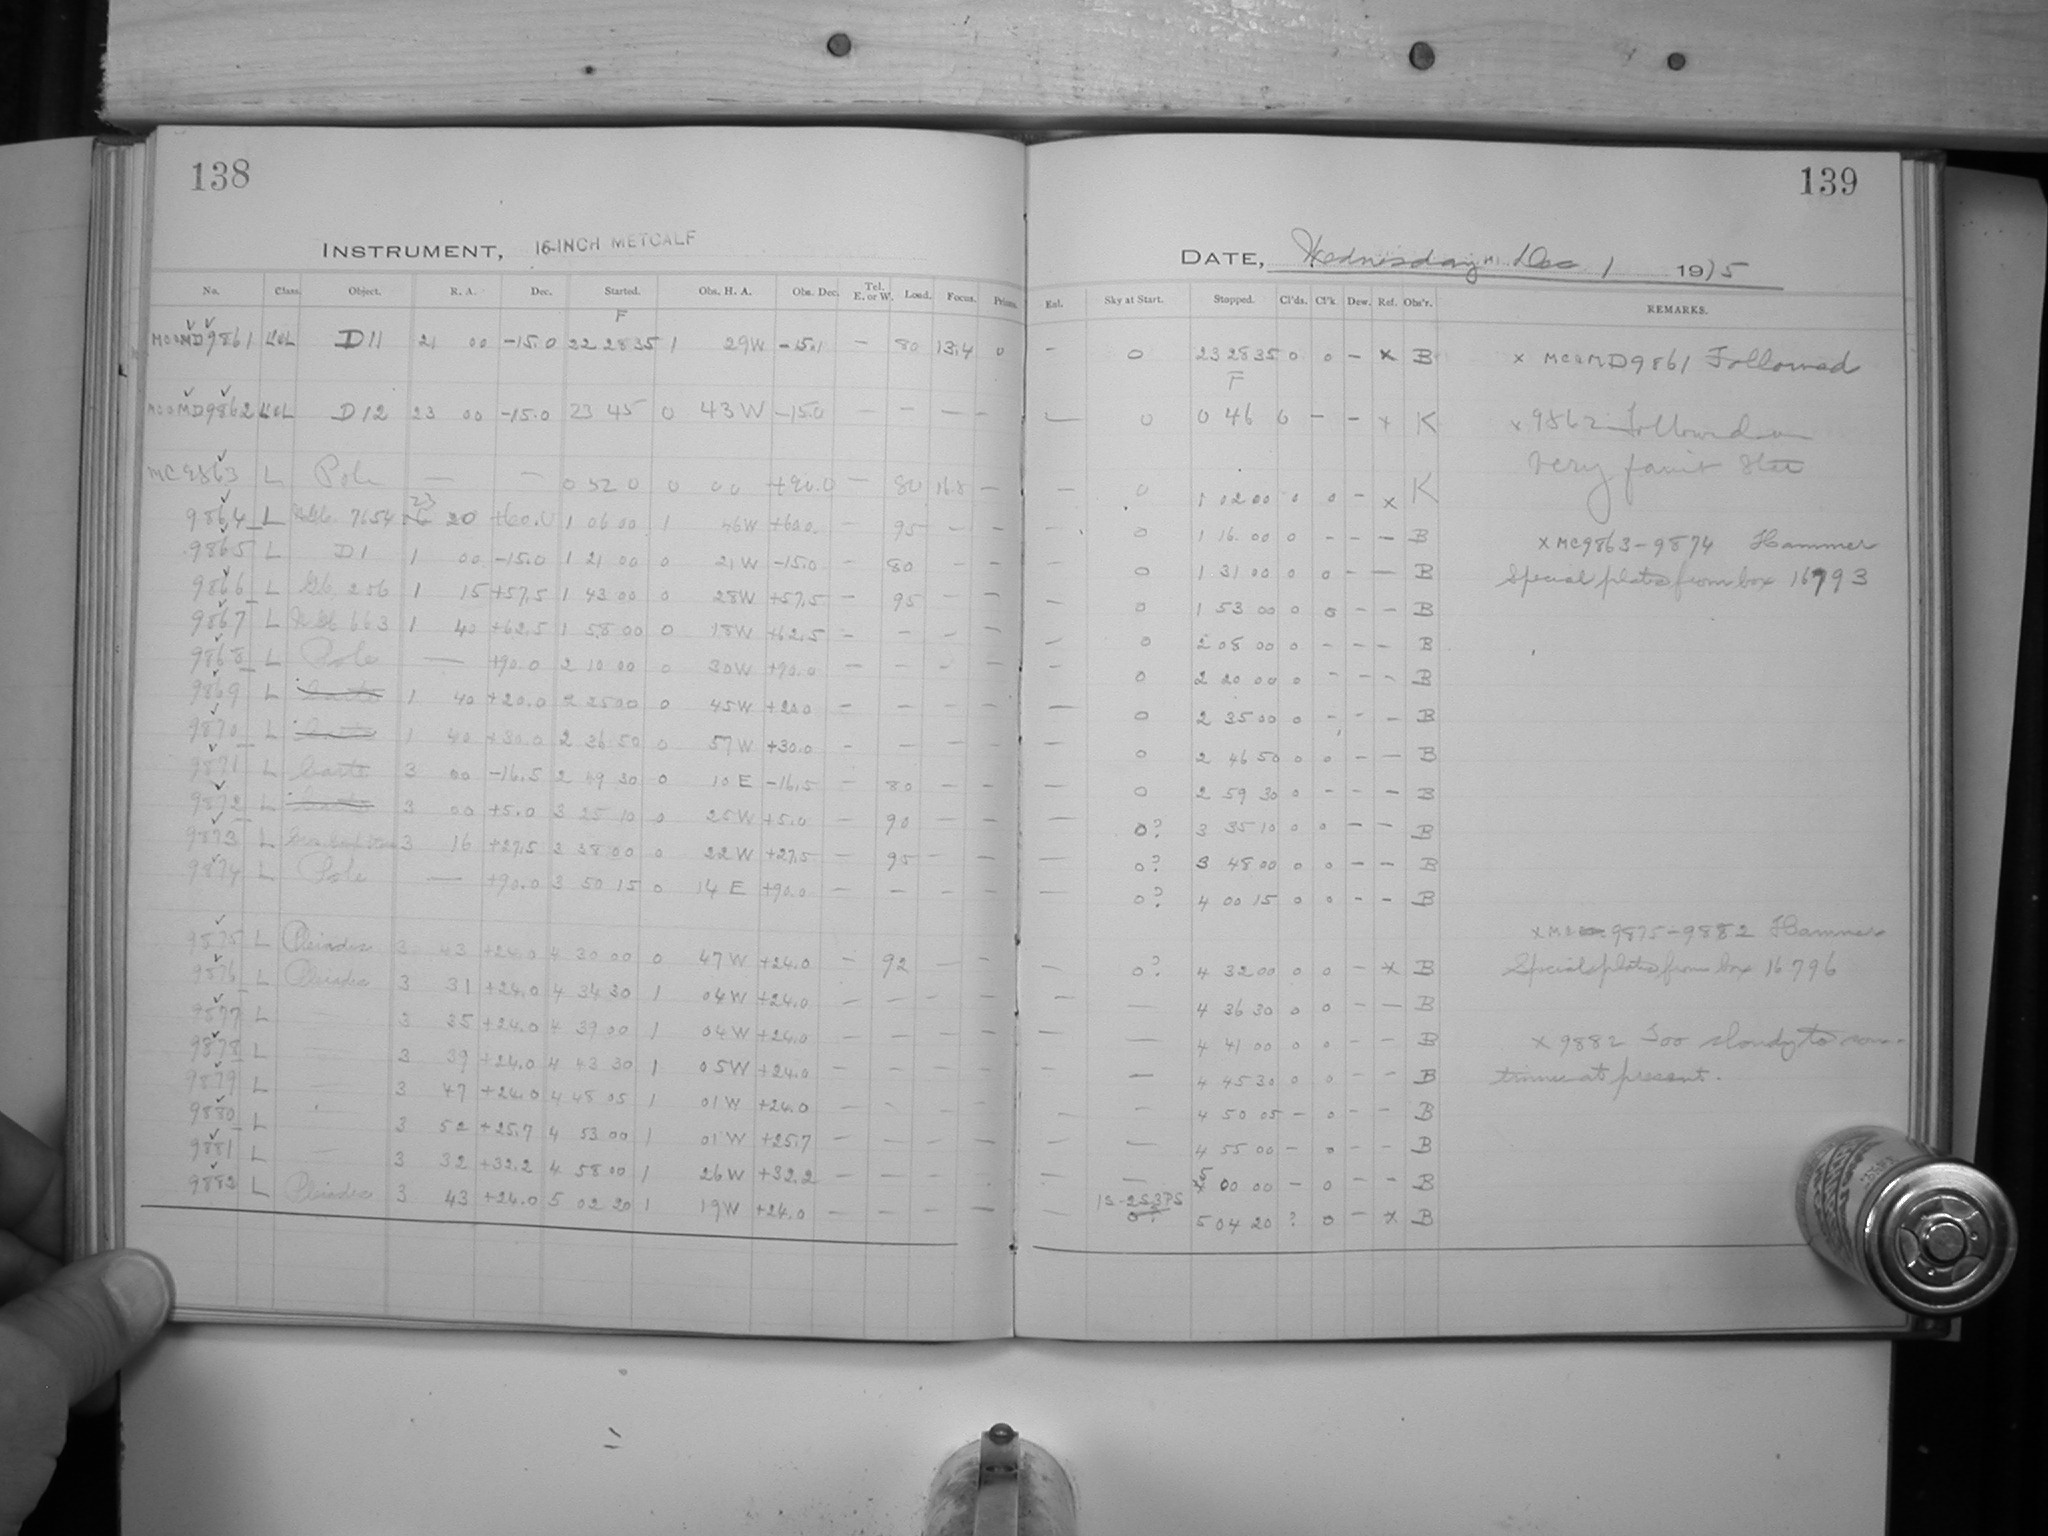 138
INSTRUMENT, 16-INCH METCALF
No. Class. Object. R. A. Dec. Started. Obs. H. A. Obs. Dec. Tel. E. or W. Load. Focus. Prisms.
F
9861 D11 21 00 -15.0 22 28 35 1 29W -15.1 — 80 13.4 0
9862 D12 23 00 -15.0 23 45 0 43W -15.0 — — — —
MC9863 L Pole — — 0 52 0 0 00 +90.0 — 80 16.8 —
9864 L 7654 23 20 +60.0 1 06 00 1 46W +60.0 — 95 — —
9865 L D1 1 00 -15.0 1 21 00 0 21W -15.0 — 80 — —
9866 L 1 15 +57.5 1 43 00 0 28W +57.5 — 95 — —
9867 L 663 1 40 +62.5 1 58 00 0 18W +62.5 — — — —
9868 L Pole — +90.0 2 10 00 0 30W +90.0 — — — —
9869 L 1 40 +20.0 2 25 00 0 45W +20.0 — — — —
9870 L 1 40 +30.0 2 36 50 0 57W +30.0 — — — —
9871 L 3 00 -16.5 2 49 30 0 10E -16.5 — 80 — —
9872 L 3 00 +5.0 3 25 10 0 25W +5.0 — 90 — —
9873 L 3 16 +27.5 3 38 00 0 22W +27.5 — 95 — —
9874 L Pole — +90.0 3 50 15 0 14E +90.0 — — — —
9875 L Pleiades 3 43 +24.0 4 30 00 0 47W +24.0 — 92 — —
9876 L Pleiades 3 31 +24.0 4 34 30 1 04W +24.0 — — — —
9877 L — 3 35 +24.0 4 39 00 1 04W +24.0 — — — —
9878 L — 3 39 +24.0 4 43 30 1 05W +24.0 — — — —
9879 L — 3 47 +24.0 4 48 05 1 01W +24.0 — — — —
9880 L 3 52 +25.7 4 53 00 1 01W +25.7 — — — —
9881 L — 3 32 +32.2 4 58 00 1 26W +32.2 — — — —
9882 L Pleiades 3 43 +24.0 5 02 20 1 19W +24.0 — — — —
139
DATE, Wednesday Dec 1 1915
Eal. Sky at Start. Stopped. Cl'ds. Cl'k. Dew. Ref. Obs'r. REMARKS.
— 0 23 28 35 0 0 — x B x 9861 Followed
F
— 0 0 46 0 — — x K x 9862 Followed on
very faint star
— 0 1 02 00 0 0 — x K
0 1 16 00 0 — — — B x MC9863-9874 Hammer
0 1 31 00 0 0 — — B Special plates from box 16793
— 0 1 53 00 0 0 — — B
— 0 2 08 00 0 — — — B
— 0 2 20 00 0 — — — B
— 0 2 35 00 0 — — — B
— 0 2 46 50 0 0 — — B
— 0 2 59 30 0 — — — B
— 0? 3 35 10 0 0 — — B
— 0? 3 48 00 0 0 — — B
— 0? 4 00 15 0 0 — — B
x 9875-9882 Hammer
— 0? 4 32 00 0 0 — x B Special plates from box 16796
— — 4 36 30 0 0 — — B
— — 4 41 00 0 0 — — B x 9882 Too cloudy to con-
— — 4 45 30 0 0 — — B tinue at present.
— — 4 50 05 — 0 — — B
— — 4 55 00 — 0 — — B
— — 5 00 00 — 0 — — B
1S-2S3PS
— 0? 5 04 20 ? 0 — x B